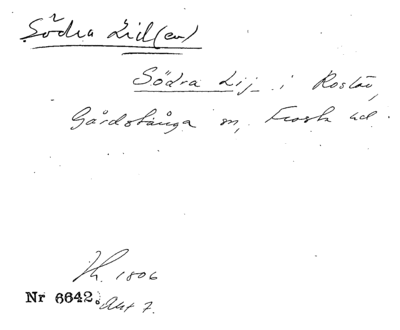 Södra Lid(en)
Södra Lij i Rostån,
Gårdstånga sn, Frosta hd.
Jh. 1806
Nr 6642. Akt 7.